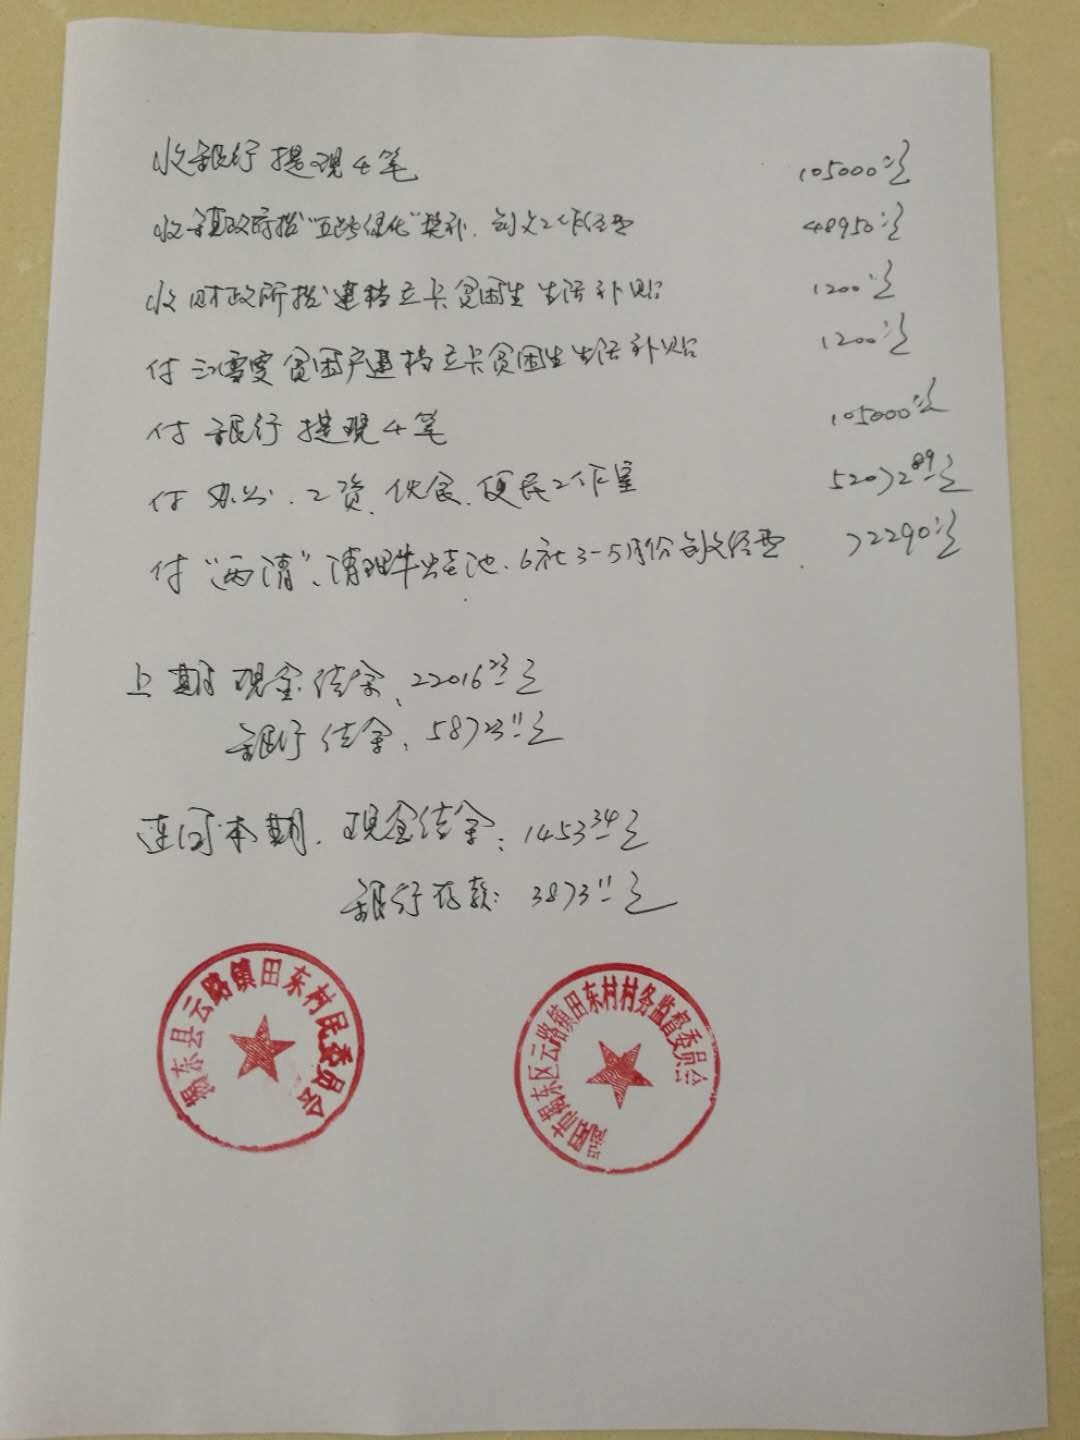 收银行提现4笔 105000元
收镇政府拨"五路绿化"奖补、创文工作经费 48950元
收财政所拨建档立卡贫困生生活补贴 1200元
付 贫困户建档立卡贫困生生活补贴 1200元
付银行提现4笔 105000元
付办公、工资、伙食、便民工作室 52072.89元
付"两清"、清理牛蛙池、6社3-5月份创文经费 72290元
上期现金结余:22016.23元
银行结余:58723.11元
连同本期,现金结余:1453.34元
银行存款:3873.11元
揭东县云路镇田东村民委员会
揭阳市揭东区云路镇田东村村务监督委员会